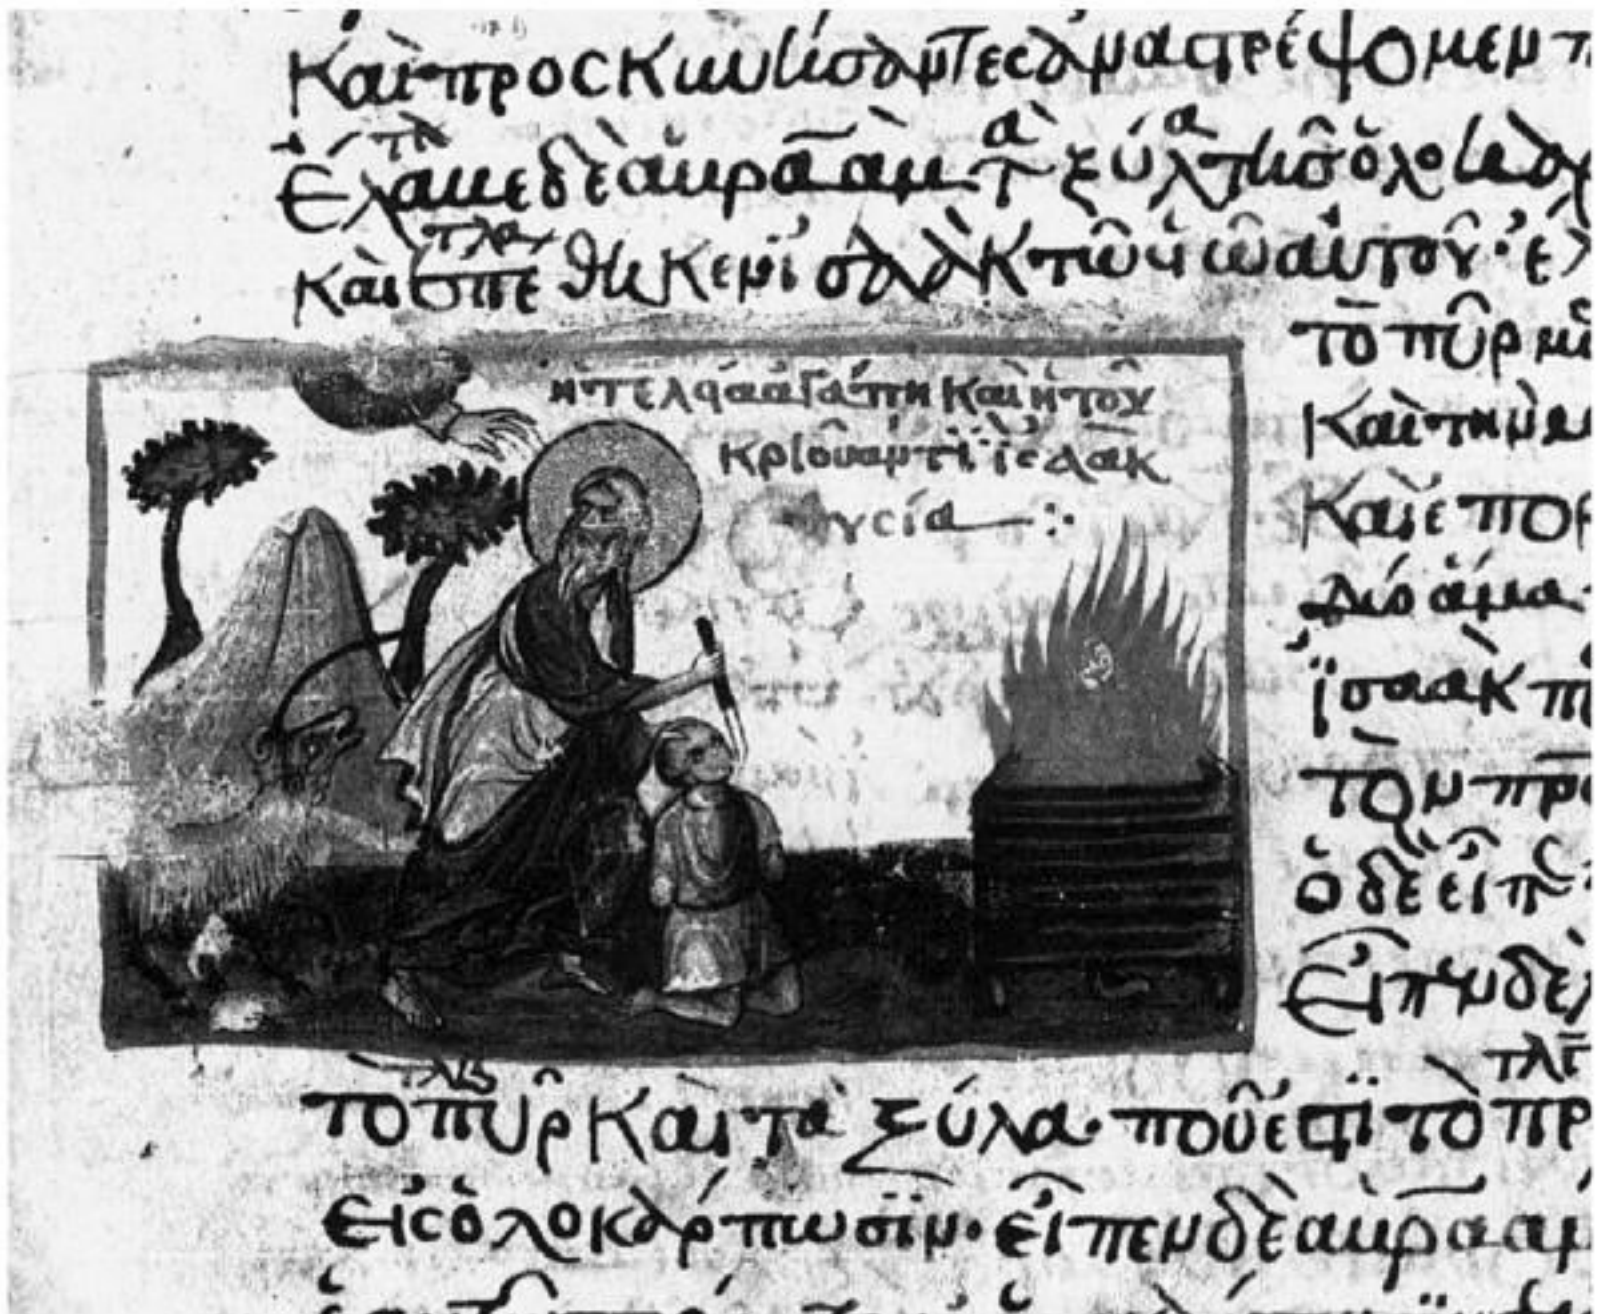 Καὶ προσκυνήσαντες ἀναστρέψομεν π
Ἔλαβε δὲ ἁβραὰμ τὰ ξύλα τῆσ ὁλο
καὶ ἐπέθηκεν ἰσαὰκ τῶ υἱῶ αὐτοῦ· ἔλ
τὸ πῦρ
ἡ τελεία ἀγάπη καὶ ἡ τοῦ
κριοῦ ἀντὶ ἰσαὰκ
θυσία
Καὶ τὴν μα
Καὶ ἐπορ
δύο ἅμα·
ἰσαὰκ π
τὸν πρα
ὁ δὲ εἶπε
Εἶπεν δὲ
τὸ πῦρ καὶ τὰ ξύλα· ποῦ ἐστὶ τὸ πρ
Εἰς ὁλοκάρπωσιν· εἶπεν δὲ ἁβραὰμ